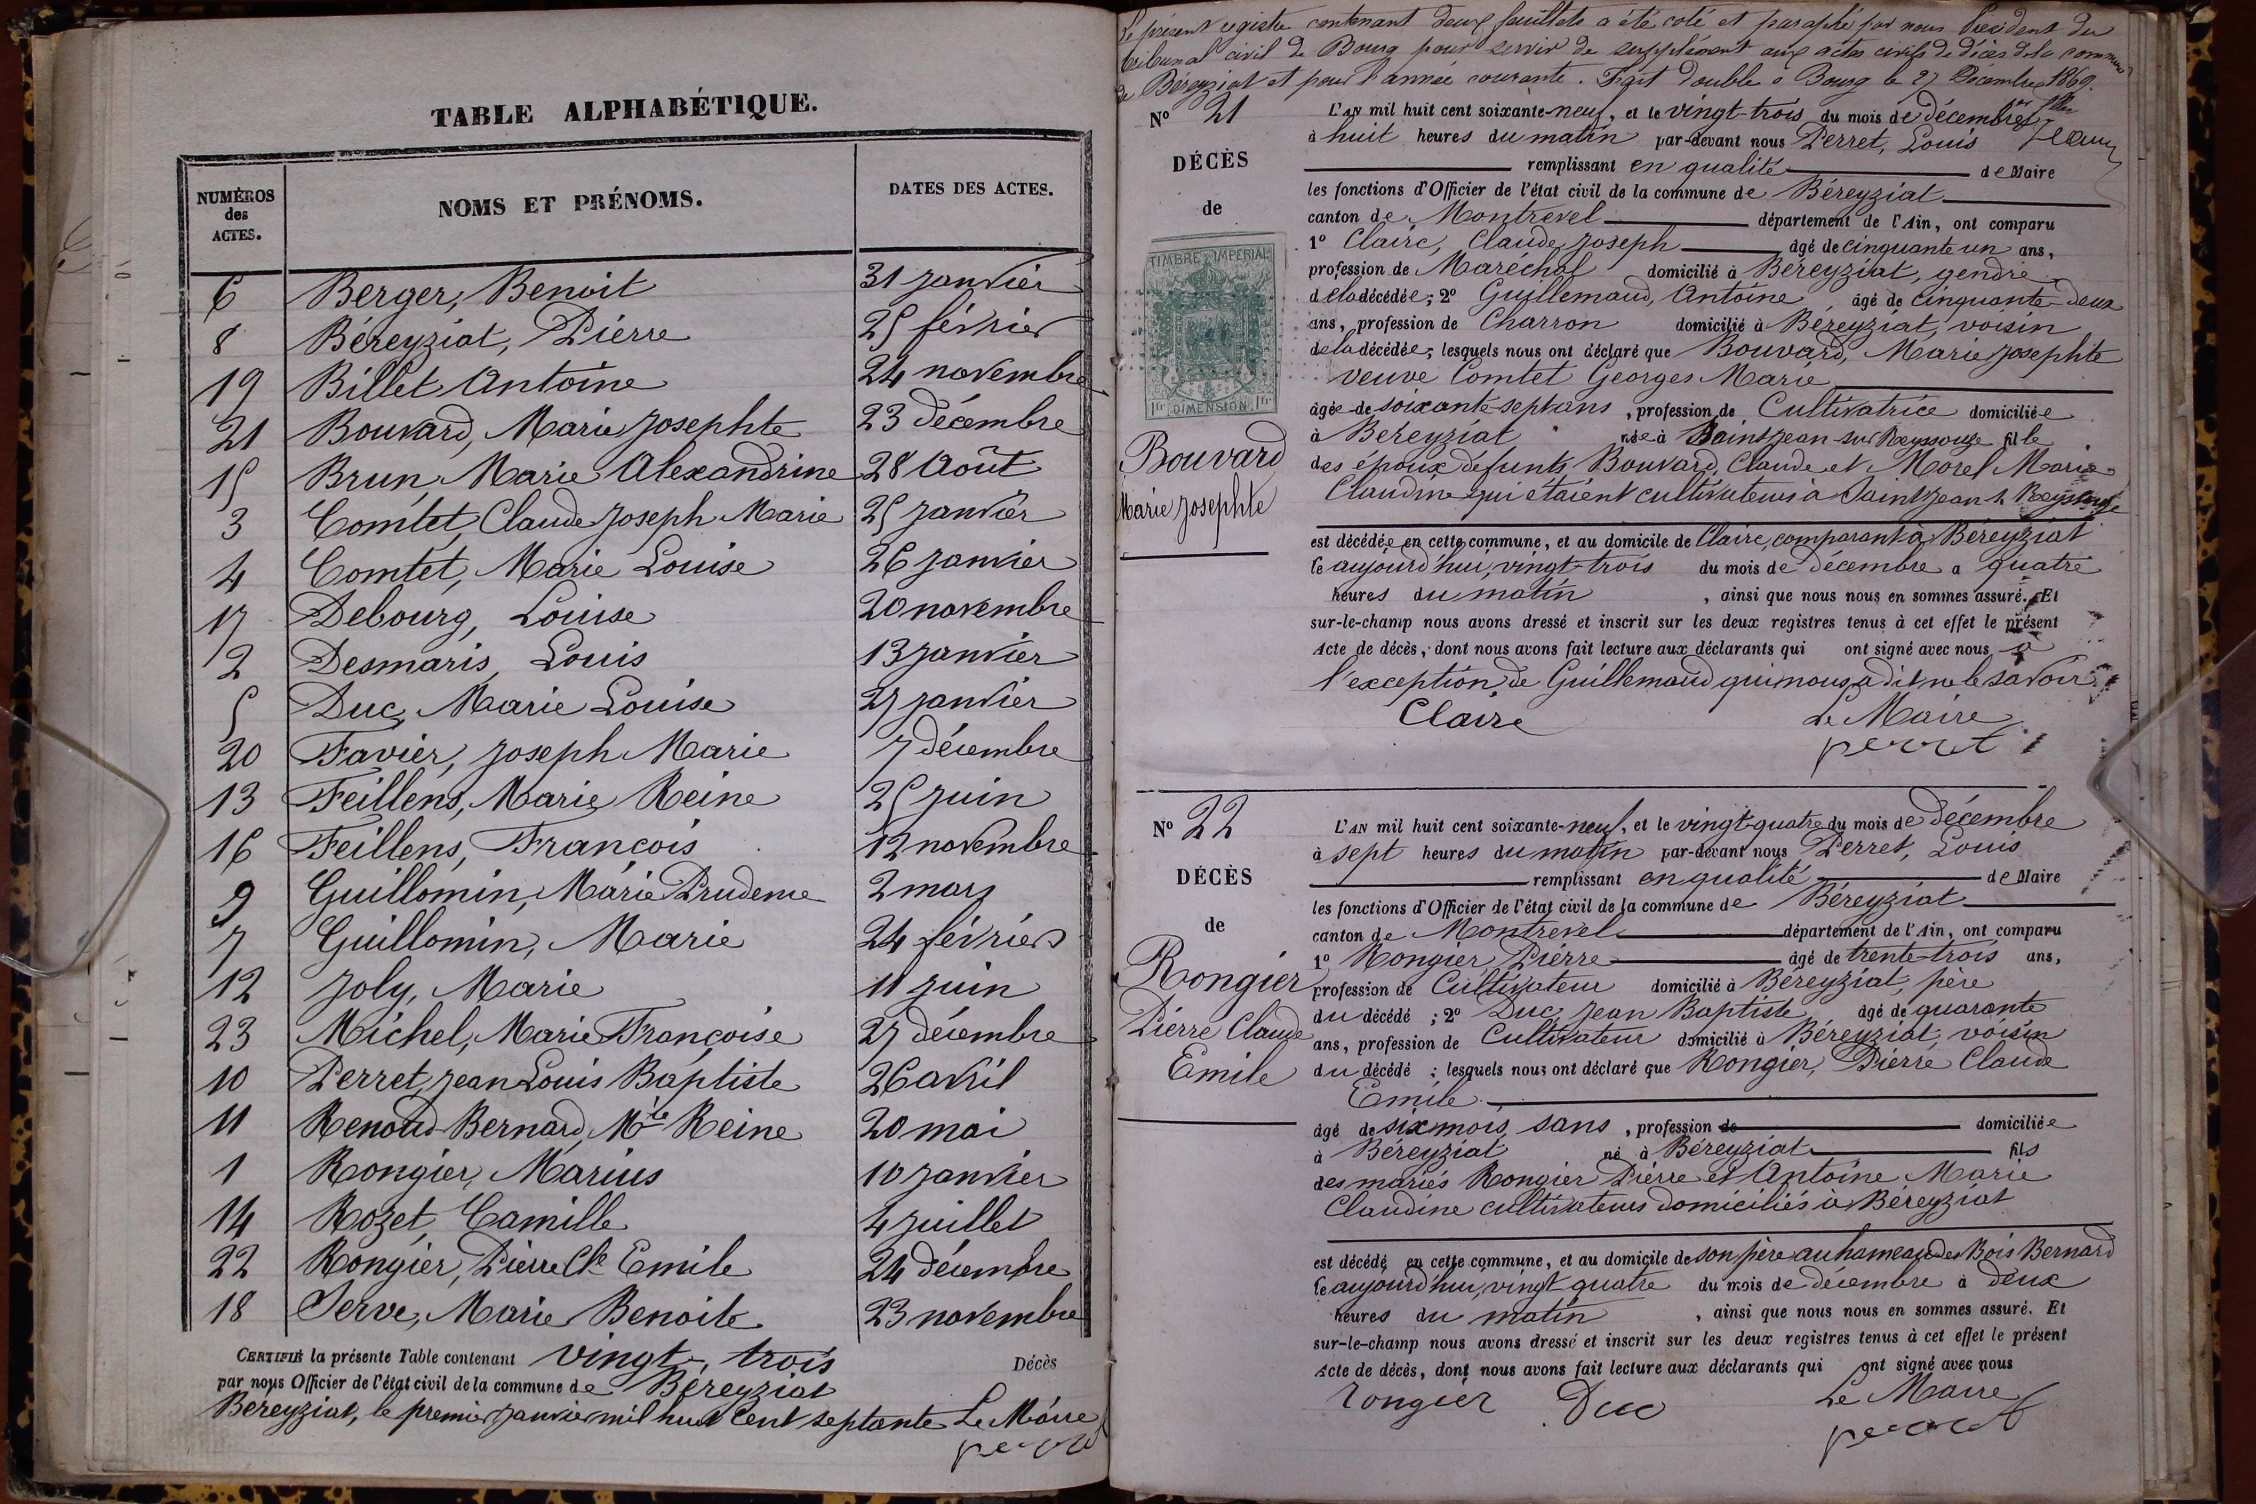 TABLE ALPHABÉTIQUE.
NUMÉROS des ACTES. NOMS ET PRÉNOMS. DATES DES ACTES.
6 Berger, Benoit 31 janvier
8 Béreyziat, Pierre 25 février
19 Billet Antoine 24 novembre
21 Bouvard, Marie Josephte 23 décembre
15 Brun, Marie Alexandrine 28 Août
3 Comtet, Claude Joseph Marie 25 janvier
4 Comtet, Marie Louise 26 janvier
17 Debourg, Louise 20 novembre
2 Desmaris, Louis 13 janvier
5 Duc, Marie Louise 27 janvier
20 Favier, Joseph Marie 7 décembre
13 Feillens, Marie Reine 25 juin
16 Feillens, François 12 novembre
9 Guillomin, Marie Prudence 2 mars
7 Guillomin, Marie 24 février
12 Joly, Marie 11 juin
23 Michel, Marie Françoise 27 décembre
10 Perret, Jean Louis Baptiste 26 avril
11 Renoud-Bernard, Mie Reine 20 mai
1 Rongier, Marius 10 janvier
14 Rozet, Camille 4 juillet
22 Rongier, Pierre Cde Emile 24 décembre
18 Serve, Marie Benoite 23 novembre
CERTIFIÉ la présente Table contenant vingt-trois Décès
par nous Officier de l'état civil de la commune de Béreyziat
Béreyziat, le premier janvier mil huit cent septante Le Maire
perret
Le présent registre contenant deux feuillets a été coté et paraphé par nous Président du
tribunal civil de Bourg pour servir de supplément aux actes civils de décès de la commune
de Béreyziat et pour l'année courante. Fait double à Bourg le 27 Décembre 1869.
N° 21
DÉCÈS
de
TIMBRE IMPERIAL
1fr DIMENSION 1fr
Bouvard
Marie Josephte
L'AN mil huit cent soixante-neuf, et le vingt-trois du mois de décembre
à huit heures du matin par-devant nous Perret, Louis
remplissant en qualité de Maire
les fonctions d'Officier de l'état civil de la commune de Béreyziat
canton de Montrevel département de l'Ain, ont comparu
1° Claire, Claude Joseph âgé de cinquante un ans,
profession de Maréchal domicilié à Béreyziat, gendre
de la décédée; 2° Guillemaud, Antoine âgé de cinquante-deux
ans, profession de Charron domicilié à Béreyziat, voisin
de la décédée; lesquels nous ont déclaré que Bouvard, Marie Josephte
veuve Comtet Georges Marie
âgée de soixante-sept ans, profession de Cultivatrice domiciliée
à Béreyziat née à Saint Jean-sur Reyssouze fille
des époux défunts Bouvard, Claude et Morel Marie
Claudine qui étaient cultivateurs à Saint Jean s. Reyssouze
est décédée en cette commune, et au domicile de Claire, comparant à Béreyziat
le aujourd'hui, vingt-trois du mois de décembre a quatre
heures du matin, ainsi que nous nous en sommes assuré. Et
sur-le-champ nous avons dressé et inscrit sur les deux registres tenus à cet effet le présent
Acte de décès, dont nous avons fait lecture aux déclarants qui ont signé avec nous à
l'exception de Guillemaud qui nous a dit ne le savoir.
Claire Le Maire
perret
N° 22
DÉCÈS
de
Rongier
Pierre Claude
Emile
L'AN mil huit cent soixante-neuf, et le vingt-quatre du mois de décembre
à sept heures du matin par-devant nous Perret, Louis
remplissant en qualité de Maire
les fonctions d'Officier de l'état civil de la commune de Béreyziat
canton de Montrevel département de l'Ain, ont comparu
1° Rongier, Pierre âgé de trente-trois ans,
profession de Cultivateur domicilié à Béreyziat, père
du décédé; 2° Duc, Jean Baptiste âgé de quarante
ans, profession de Cultivateur domicilié à Béreyziat, voisin
du décédé; lesquels nous ont déclaré que Rongier, Pierre Claude
Emile
âgé de six mois, sans, profession de domicilié
à Béreyziat né à Béreyziat fils
des mariés Rongier Pierre et Antoine Marie
Claudine cultivateurs domiciliés à Béreyziat
est décédé en cette commune, et au domicile de son père au hameau des Bois Bernard
le aujourd'hui, vingt-quatre du mois de décembre à deux
heures du matin, ainsi que nous nous en sommes assuré. Et
sur-le-champ nous avons dressé et inscrit sur les deux registres tenus à cet effet le présent
Acte de décès, dont nous avons fait lecture aux déclarants qui ont signé avec nous
rongier Duc Le Maire
perret